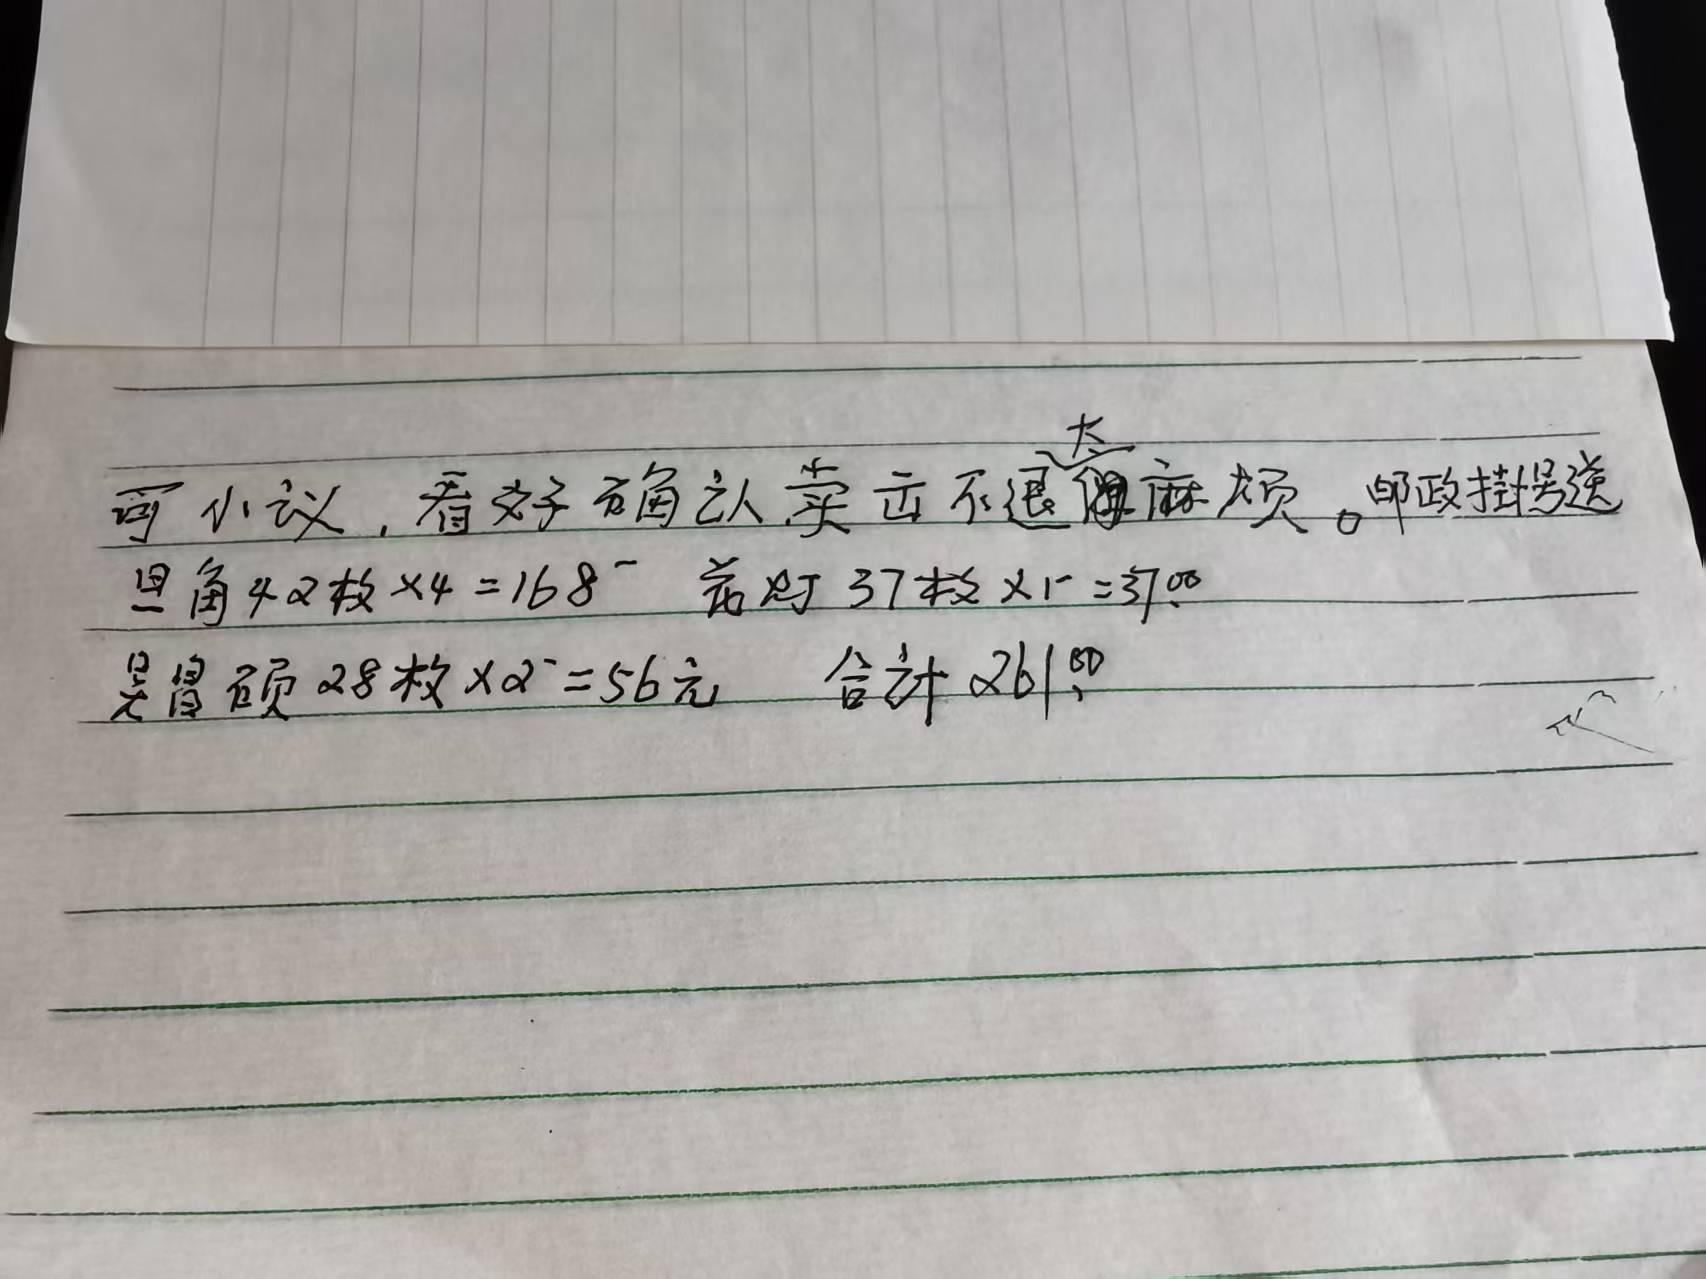 可小议，看好确认卖出不退太麻烦。邮政挂号送
旦角42枚×4=168- 花灯37枚×1-=37.00
吴昌硕28枚×2-=56元 合计261.00